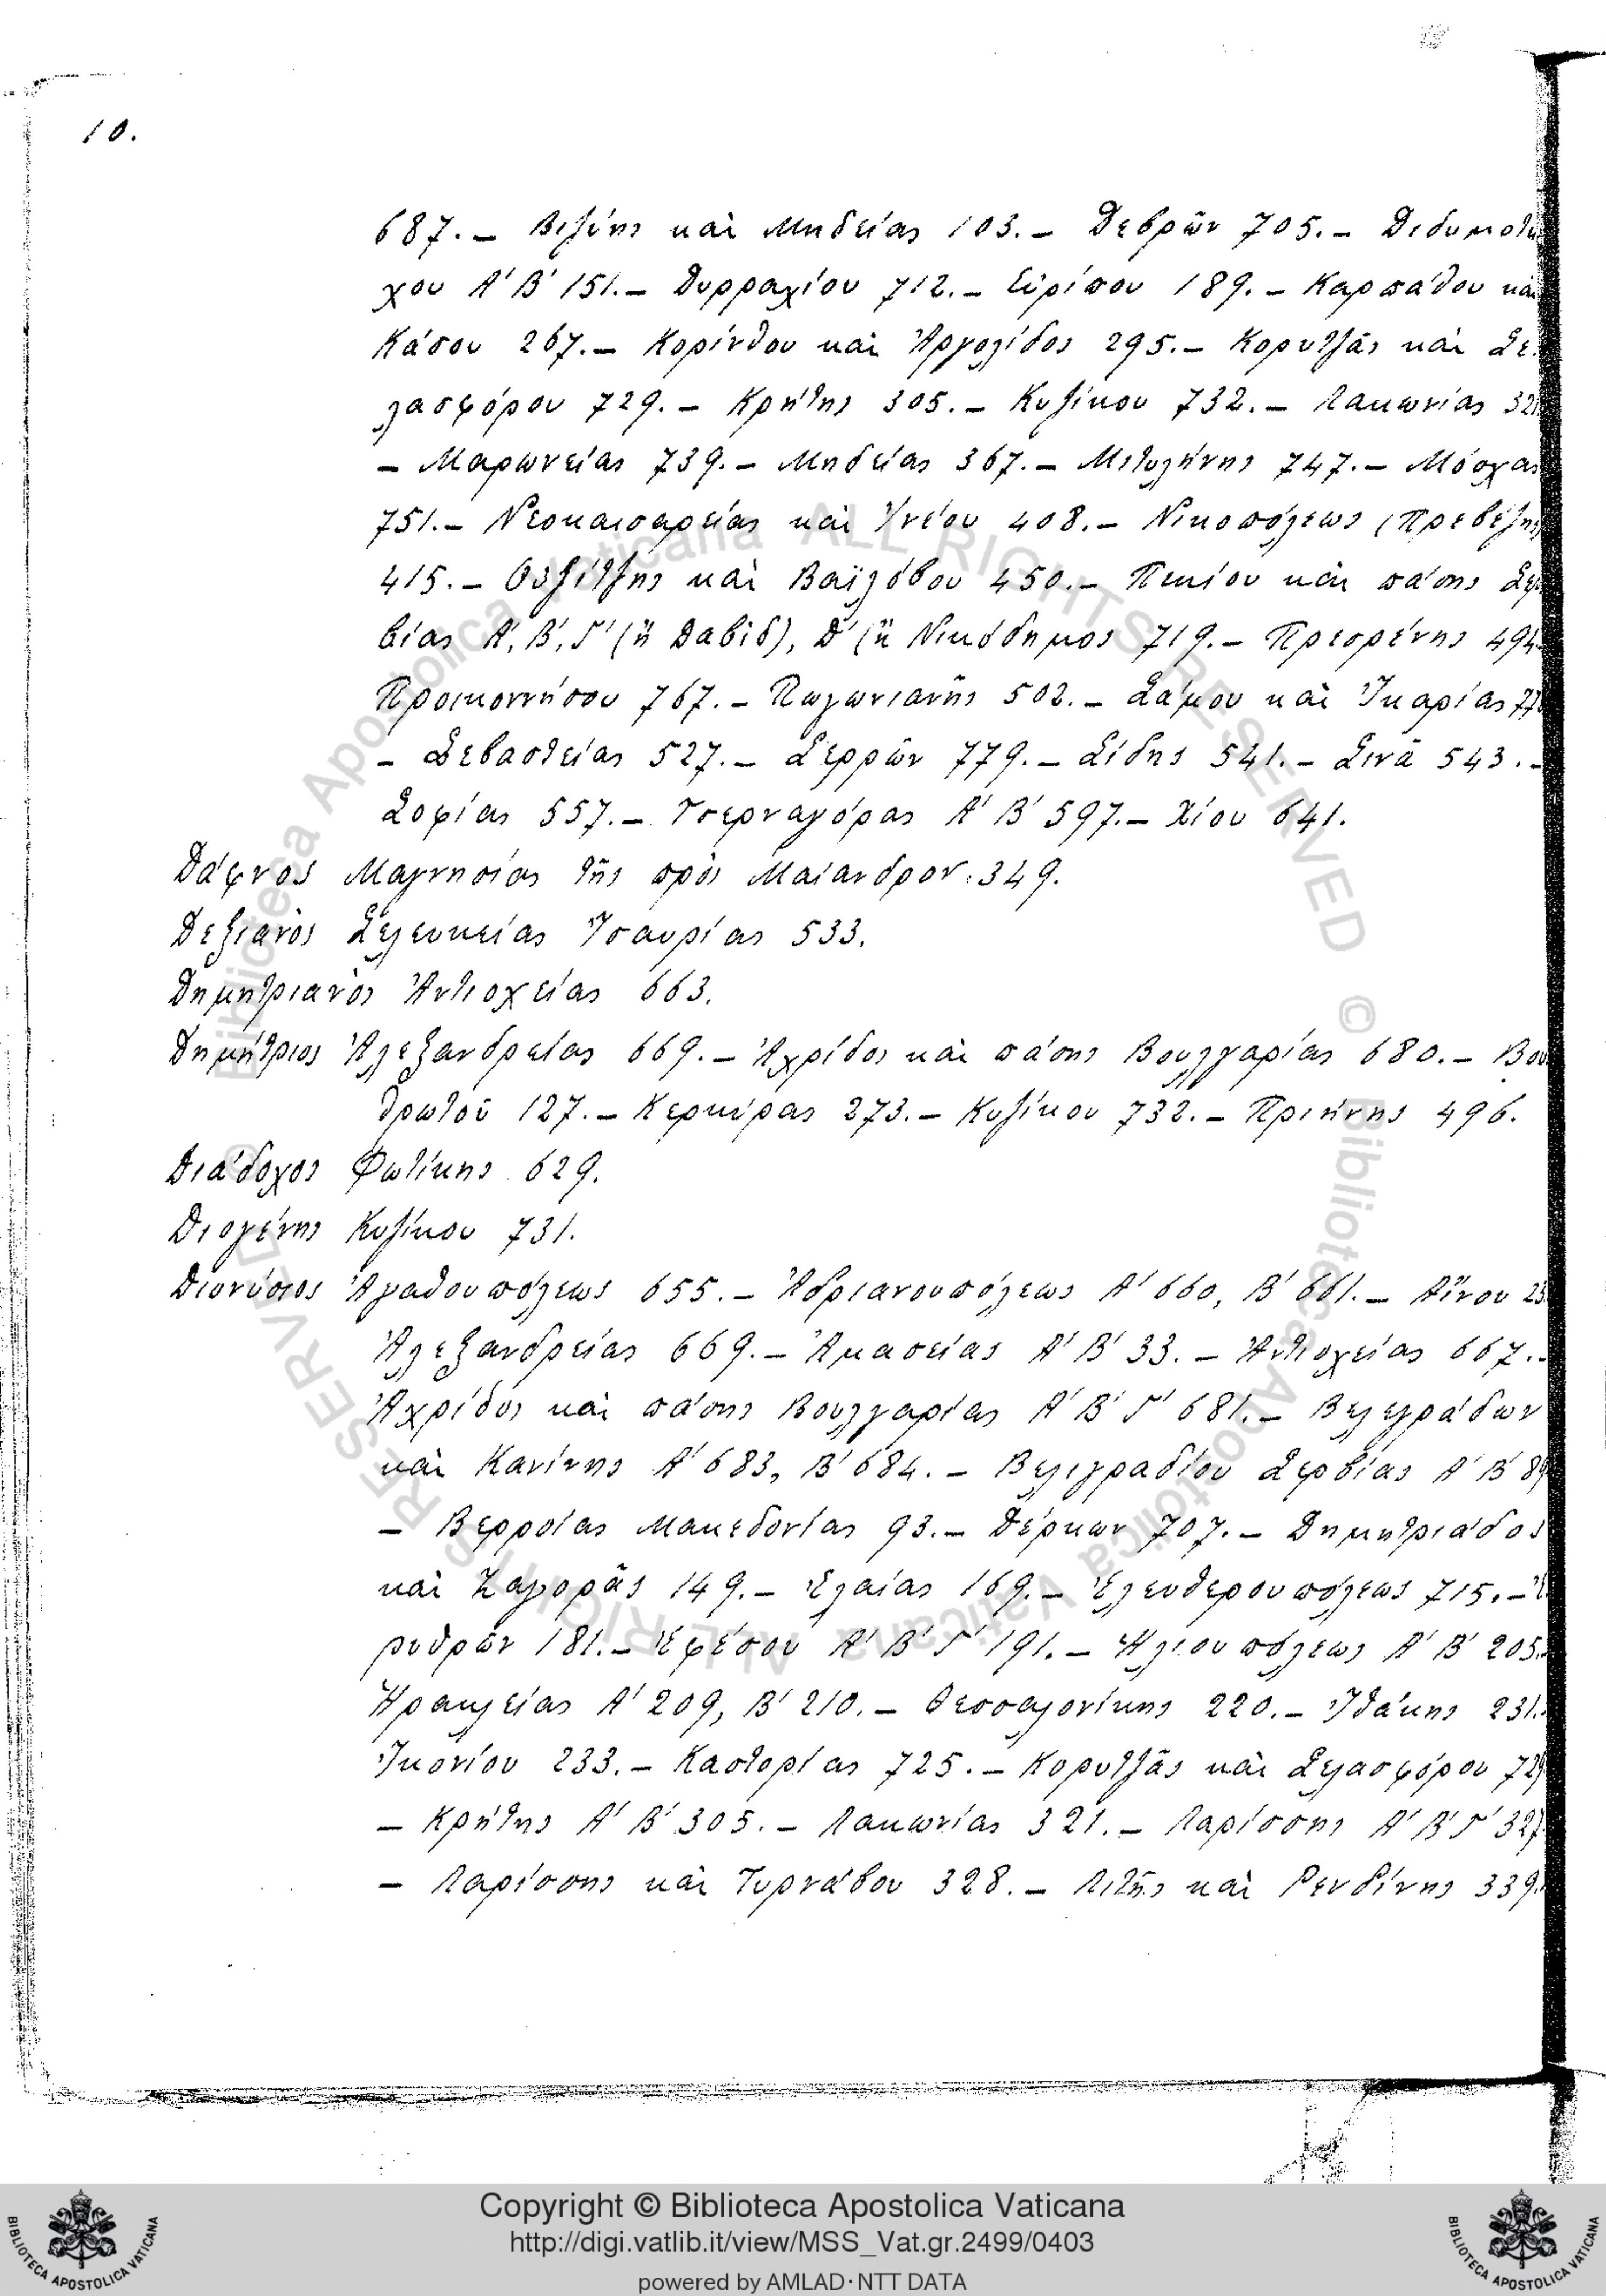 10.
687. – Βιζύης καὶ Μηδείας 103. – Δεβρῶν 705. – Διδυμοτύ
χου Α' Β' 151. – Δυρραχίου 712. – Εὐρίπου 189. – Καρπάθου καὶ
Κάσου 267. – Κορίνθου καὶ Ἀργολίδος 295. – Κορυτζᾶς καὶ Σε
λασφόρου 729. – Κρήτης 305. – Κυζίκου 732. – Λακωνίας 321
– Μαρωνείας 739. – Μηδείας 367. – Μιτυλήνης 747. – Μόσχας
751. – Νεοκαισαρείας καὶ Ἰνέου 408. – Νικοπόλεως (Πρεβέζης)
415. – Οὐζίτζης καὶ Βαϊλόβου 450. – Πεκίου καὶ πάσης Σερ
βίας Α', Β', Γ' (ἢ Δαβίδ), Δ' (ἢ Νικόδημος 719. – Πρεσρένης 494.
Προικοννήσου 767. – Πωγωνιανῆς 502. – Σάμου καὶ Ἰκαρίας
– Σεβαστείας 527. – Σερρῶν 779. – Σίδης 541. – Σινᾶ 543. –
Σοφίας 557. – Τσερναγόρας Α' Β' 597. – Χίου 641.
Δάφνος Μαγνησίας τῆς πρὸς Μαίανδρον 349.
Δεξιανὸς Σελευκείας Ἰσαυρίας 533.
Δημητριανὸς Ἀντιοχείας 663.
Δημήτριος Ἀλεξανδρείας 669. – Ἀχρίδος καὶ πάσης Βουλγαρίας 680. – Βου
θρωτοῦ 127. – Κερκύρας 273. – Κυζίκου 732. – Πριήνης 496.
Διάδοχος Φωτίκης 629.
Διογένης Κυζίκου 731.
Διονύσιος Ἀγαθουπόλεως 655. – Ἀδριανουπόλεως Α' 660, Β' 661. – Αἴνου 23
Ἀλεξανδρείας 669. – Ἀμασείας Α' Β' 33. – Ἀντιοχείας 667. –
Ἀχρίδος καὶ πάσης Βουλγαρίας Α' Β' Γ' 681. – Βελεγράδων
καὶ Κανίνης Α' 683, Β' 684. – Βελιγραδίου Σερβίας Α' Β' 89
– Βερροίας Μακεδονίας 93. – Δέρκων 707. – Δημητριάδος
καὶ Ζαγορᾶς 149. – Ἐλαίας 169. – Ἐλευθερουπόλεως 715. – Ἐ
ρυθρῶν 181. – Ἐφέσου Α' Β' Γ' 191. – Ἡλιουπόλεως Α' Β' 205.
Ἡρακλείας Α' 209, Β' 210. – Θεσσαλονίκης 220. – Ἰθάκης 231.
Ἰκονίου 233. – Καστορίας 725. – Κορυτζᾶς καὶ Σελασφόρου 729
– Κρήτης Α' Β' 305. – Λακωνίας 321. – Λαρίσσης Α' Β' Γ' 327
– Λαρίσσης καὶ Τυρνάβου 328. – Λιτῆς καὶ Ρενδίνης 339.
© Biblioteca Apostolica Vaticana ALL RIGHTS RESERVED © Biblioteca Apostolica Vaticana ALL RIGHTS RESERVED
BIBLIOTECA APOSTOLICA VATICANA
Copyright © Biblioteca Apostolica Vaticana
http://digi.vatlib.it/view/MSS_Vat.gr.2499/0403
powered by AMLAD·NTT DATA
BIBLIOTECA APOSTOLICA VATICANA